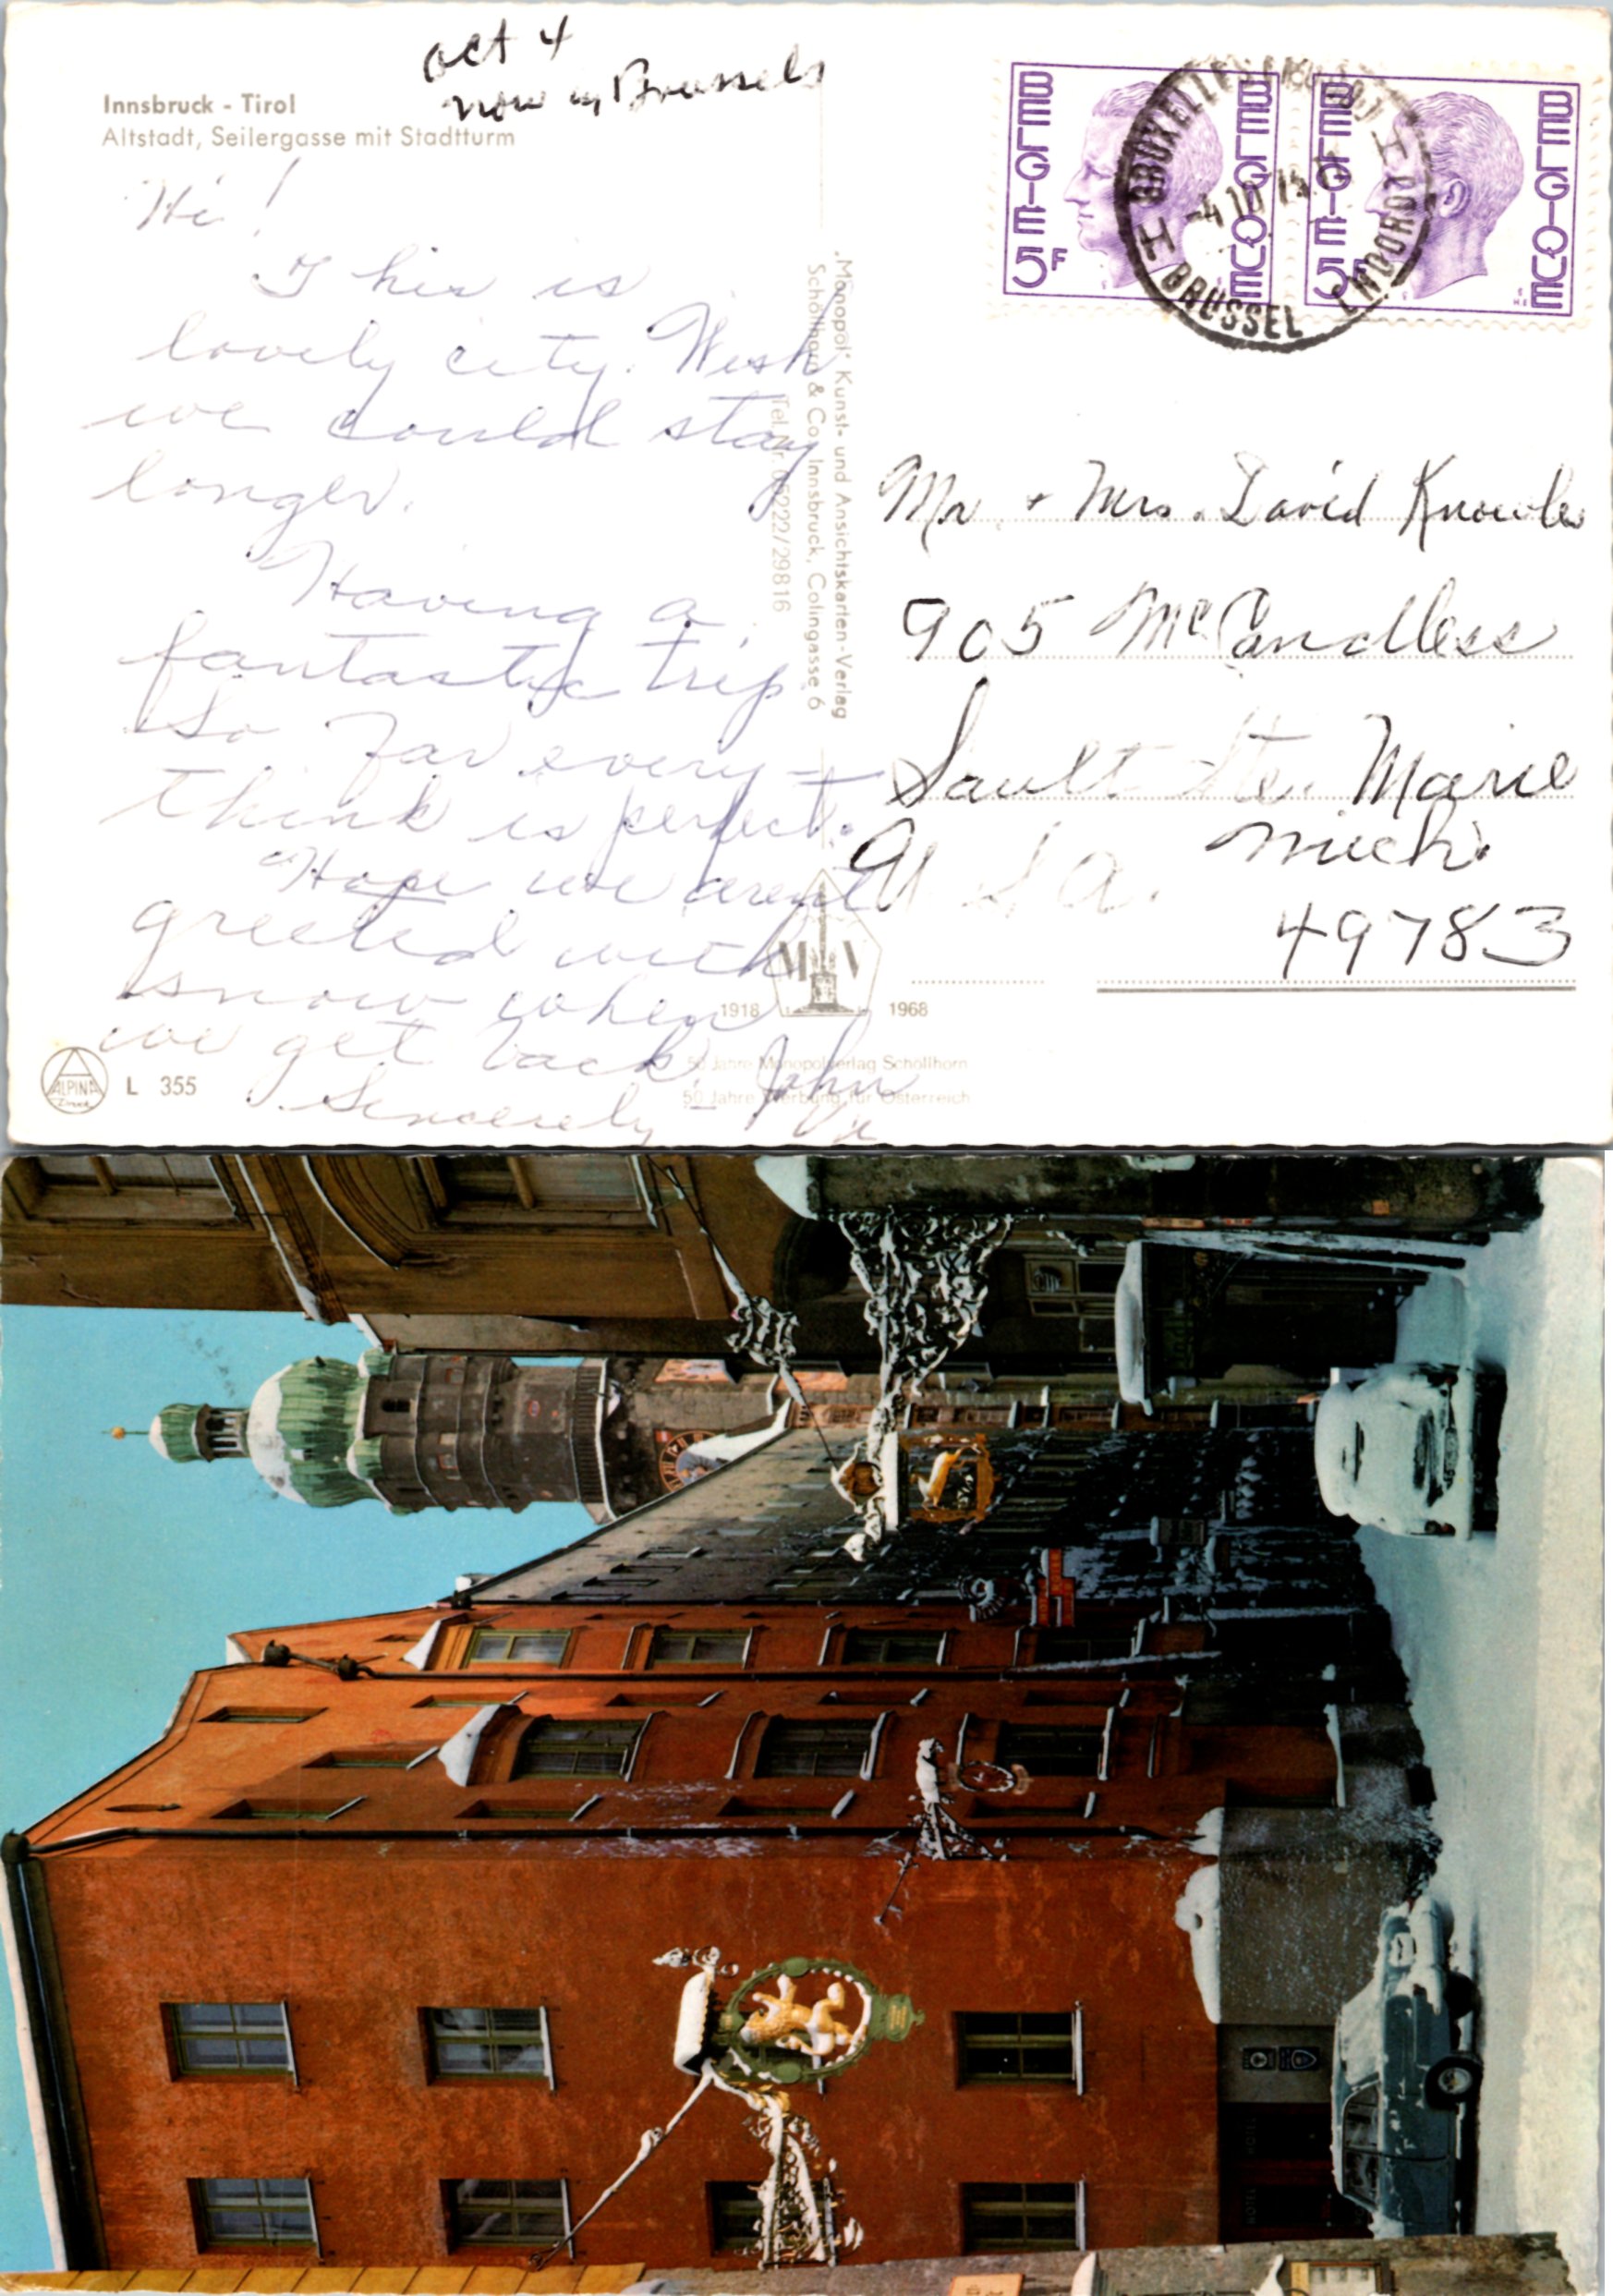 oct 4
now in Brussels
Innsbruck - Tirol
Altstadt, Seilergasse mit Stadtturm
Hi!
This is
lovely city. Wish
we could stay
longer.
Having a
fantastic trip.
So far every-
think is perfect.
Hope we arent
greeted with
snow when
we get back.
Sincerely - John
„Monopol“ Kunst- und Ansichtskarten-Verlag
Schöllhorn & Co., Innsbruck, Colingasse 6
Tel. Nr. 05222/29816
BELGIE BELGIQUE
5F
BELGIE BELGIQUE
5F
BRUXELLES
BRUSSEL
-4 10
Mr + Mrs. David Knowles
905 McCandless
Sault Ste. Marie
Mich.
U S A.
49783
M V
1918 1968
50 Jahre Monopolverlag Schöllhorn
50 Jahre Werbung für Österreich
ALPINA
L 355
HOTEL HOTEL